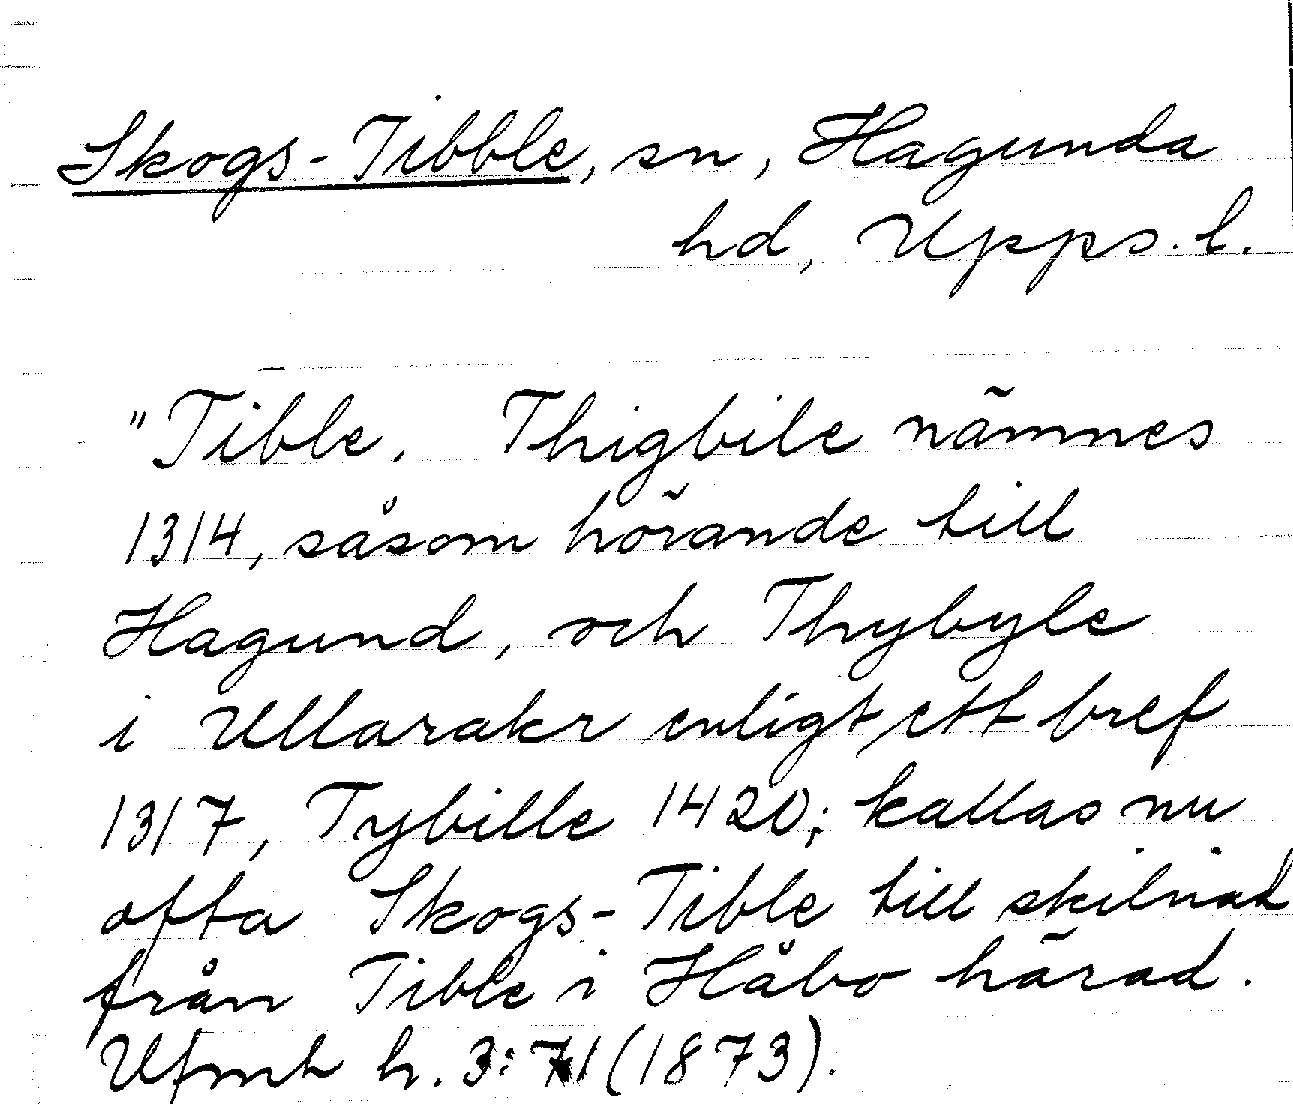 Skogs-Tibble, sn, Hagunda
hd, Upps. l.
"Tible. Thigbile nämnes
1314, såsom hörande till
Hagund, och Thybyle
i Ullarakr enligt ett bref
1317, Tybille 1420; kallas nu
ofta Skogs-Tible till skilnad
från Tible i Håbo härad.
Ufmt h. 3:71 (1873).